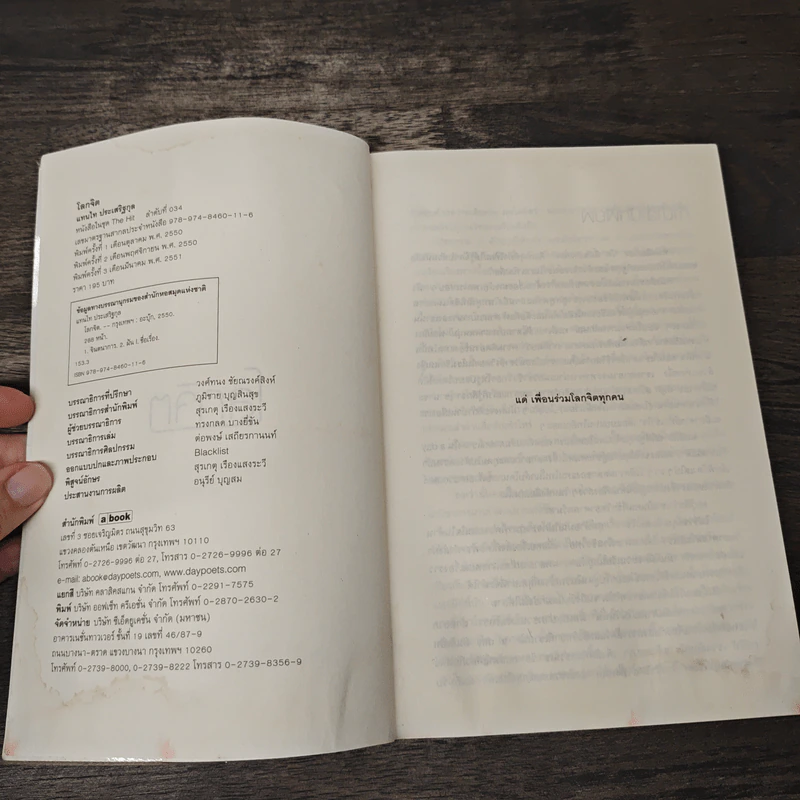 โลกจิต
แทนไท ประเสริฐกุล
หนังสือในชุด The Hit ลำดับที่ 034
เลขมาตรฐานสากลประจำหนังสือ 978-974-8460-11-6
พิมพ์ครั้งที่ 1 เดือนตุลาคม พ.ศ. 2550
พิมพ์ครั้งที่ 2 เดือนพฤศจิกายน พ.ศ. 2550
พิมพ์ครั้งที่ 3 เดือนมีนาคม พ.ศ. 2551
ราคา 195 บาท
ข้อมูลทางบรรณานุกรมของสำนักหอสมุดแห่งชาติ
แทนไท ประเสริฐกุล
โลกจิต. -- กรุงเทพฯ : อะบุ๊ก, 2550.
299 หน้า.
1. จินตนาการ. 2. ฝัน I. ชื่อเรื่อง.
153.3
ISBN 978-974-8460-11-6
บรรณาธิการที่ปรึกษา วงศ์ทนง ชัยณรงค์สิงห์
บรรณาธิการสำนักพิมพ์ ภูมิชาย บุญสินสุข
ผู้ช่วยบรรณาธิการ สุรเกตุ เรืองแสงระวี
บรรณาธิการเล่ม ทรงกลด บางยี่ขัน
บรรณาธิการศิลปกรรม ต่อพงษ์ เสถียรกานนท์
ออกแบบปกและภาพประกอบ Blacklist
พิสูจน์อักษร สุรเกตุ เรืองแสงระวี
ประสานงานการผลิต อนุรีย์ บุญสม
สำนักพิมพ์ a book
เลขที่ 3 ซอยเจริญมิตร ถนนสุขุมวิท 63
แขวงคลองตันเหนือ เขตวัฒนา กรุงเทพฯ 10110
โทรศัพท์ 0-2726-9996 ต่อ 27, โทรสาร 0-2726-9996 ต่อ 27
e-mail: abook@daypoets.com, www.daypoets.com
แยกสี บริษัท คลาสิคสแกน จำกัด โทรศัพท์ 0-2291-7575
พิมพ์ บริษัท ออฟเซ็ท ครีเอชั่น จำกัด โทรศัพท์ 0-2870-2630-2
จัดจำหน่าย บริษัท ซีเอ็ดยูเคชั่น จำกัด (มหาชน)
อาคารเนชั่นทาวเวอร์ ชั้นที่ 19 เลขที่ 46/87-9
ถนนบางนา-ตราด แขวงบางนา กรุงเทพฯ 10260
โทรศัพท์ 0-2739-8000, 0-2739-8222 โทรสาร 0-2739-8356-9
แด่ เพื่อนร่วมโลกจิตทุกคน